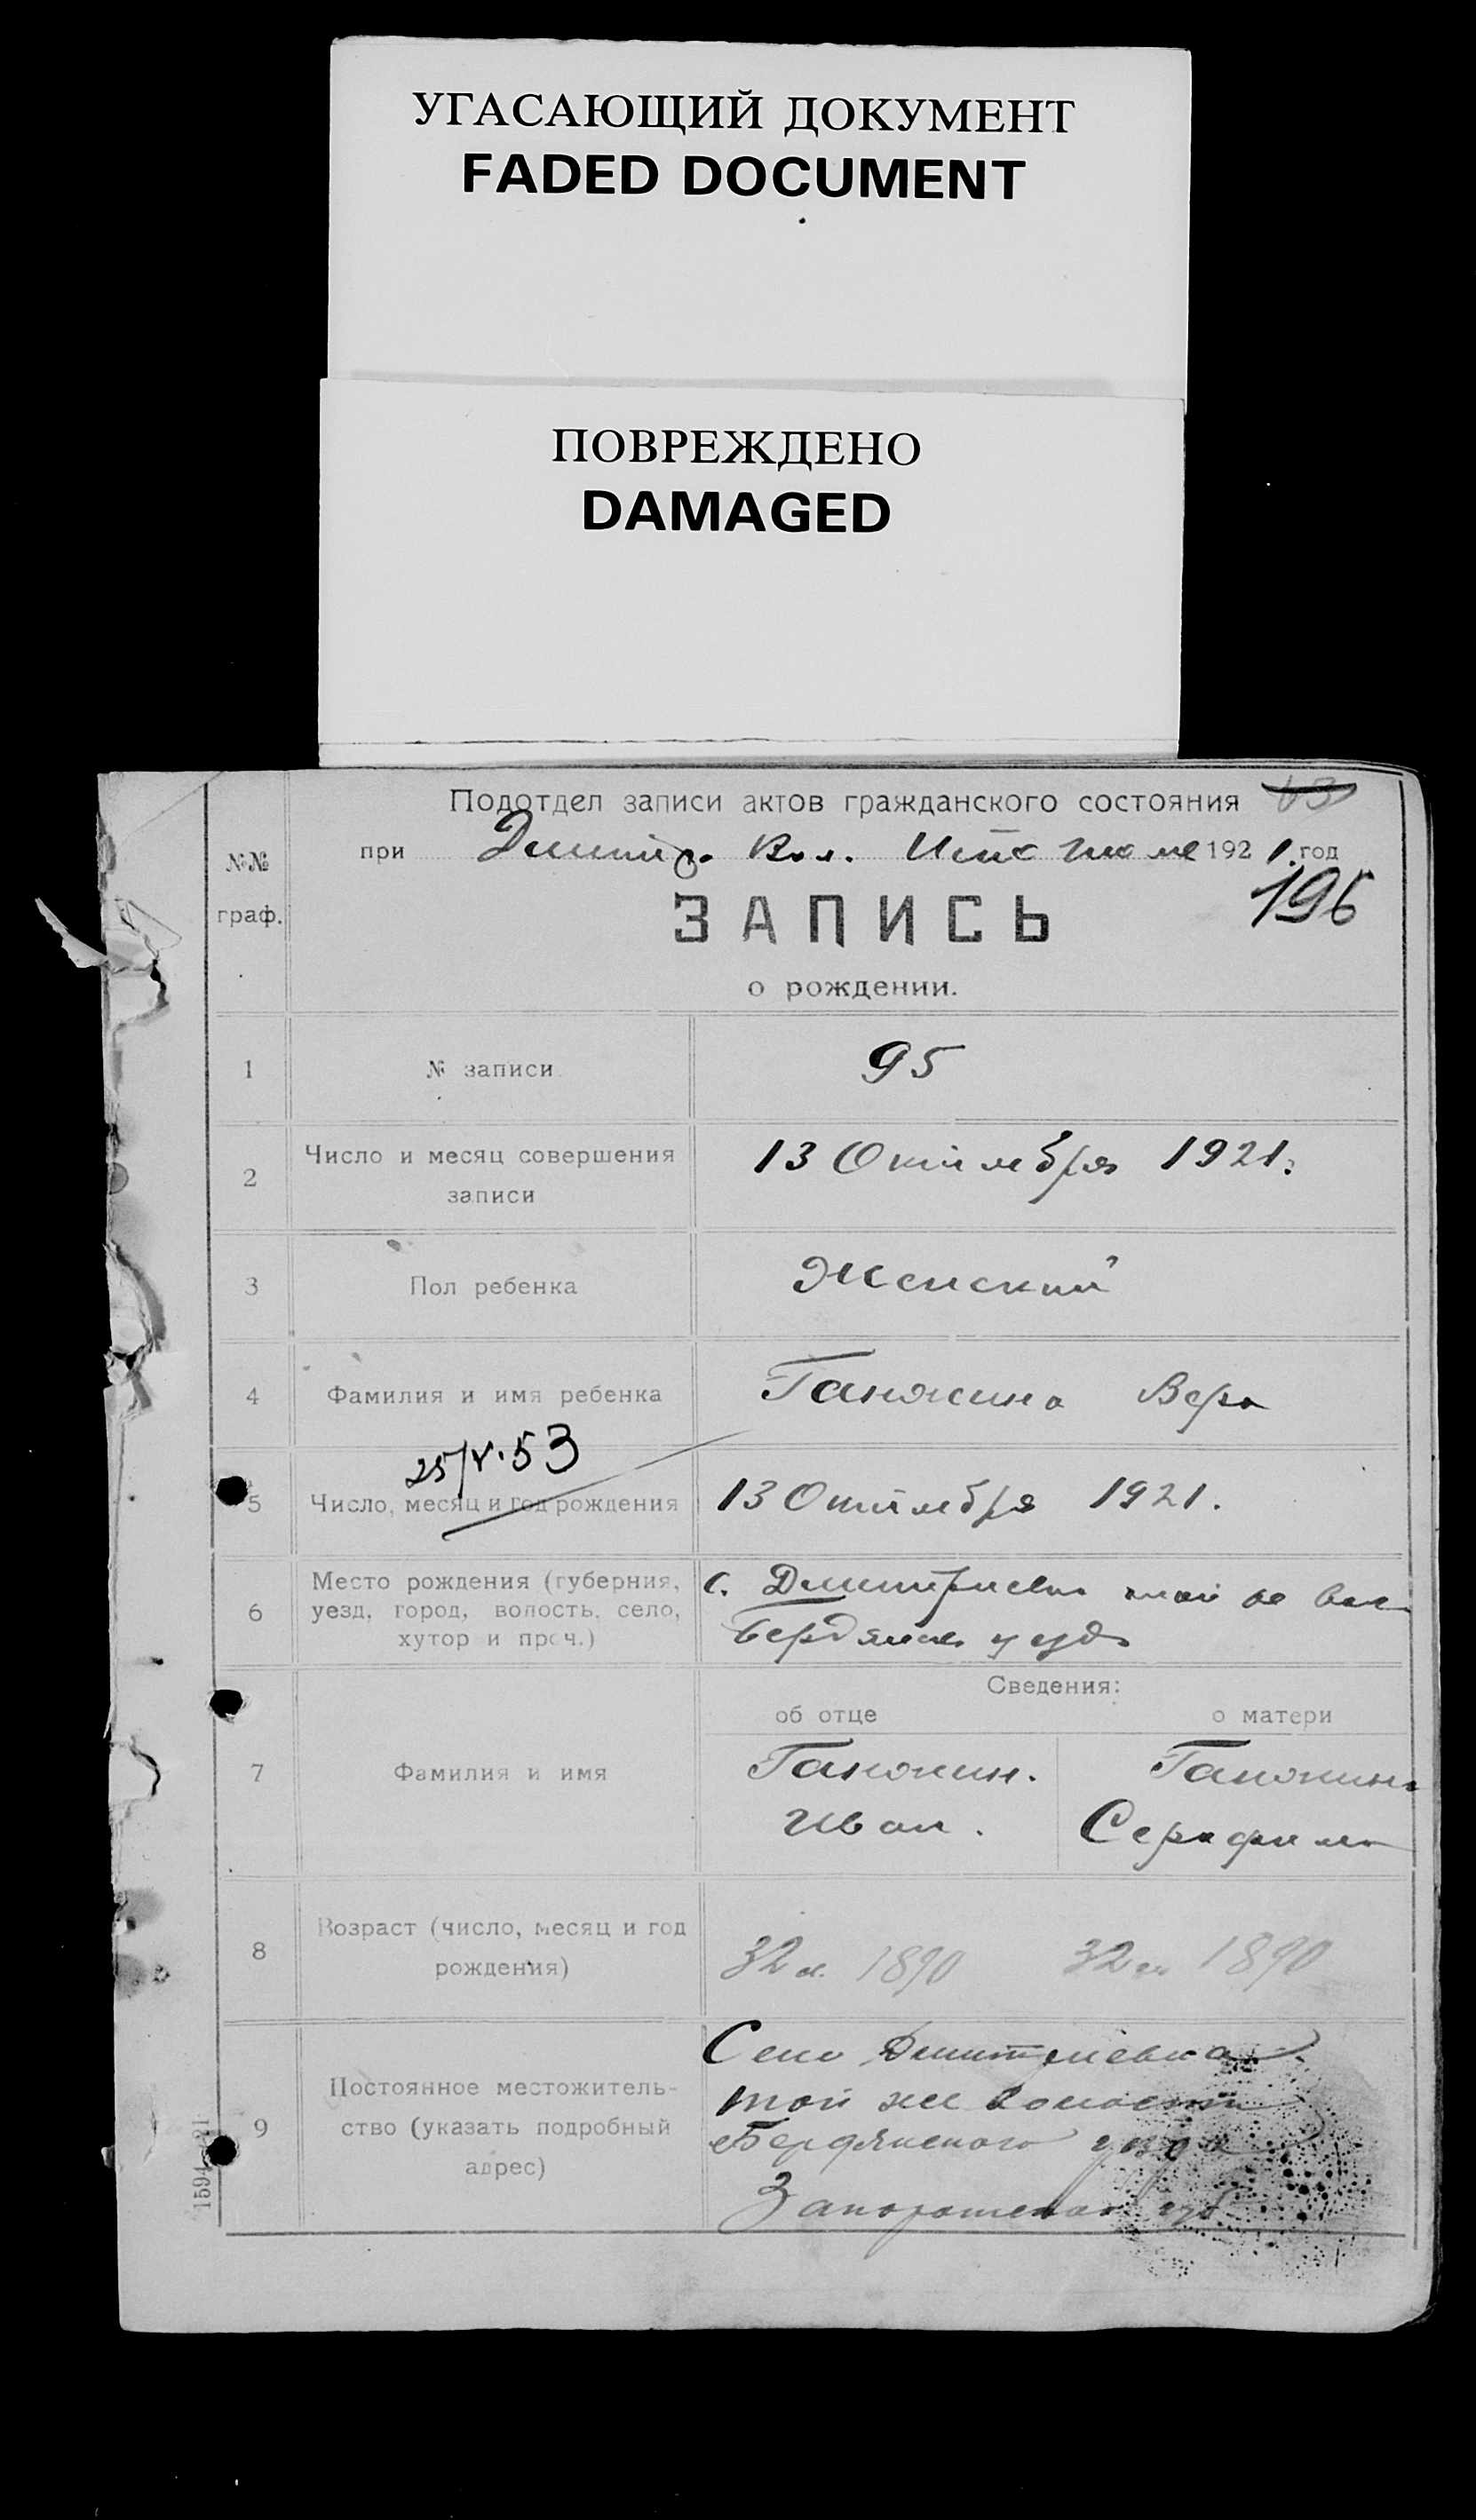 УГАСАЮЩИЙ ДОКУМЕНТ
FADED DOCUMENT
ПОВРЕЖДЕНО
DAMAGED
Подотдел записи актов гражданского состояния 63
при Дмитр. Вол. 1921 год
№№ граф.
196
ЗАПИСЬ
о рождении.
1 № записи 95
2 Число и месяц совершения записи 13 Октября 1921.
3 Пол ребенка Женский
4 Фамилия и имя ребенка Ганюкина Вера
25/V.53
5 Число, месяц и год рождения 13 Октября 1921.
6 Место рождения (губерния, уезд, город, волость, село, хутор и проч.)
с. Дмитриевка той же вол
Бердянск уезда
Сведения:
об отце о матери
7 Фамилия и имя
Ганюкин. Ганюкина
Иван. Серафима
8 Возраст (число, месяц и год рождения)
32 л. 1890 32 л. 1890
9 Постоянное местожительство (указать подробный адрес)
Село Дмитриевка
той же волости
Бердянского уезда
Запорожской губ
1594—21